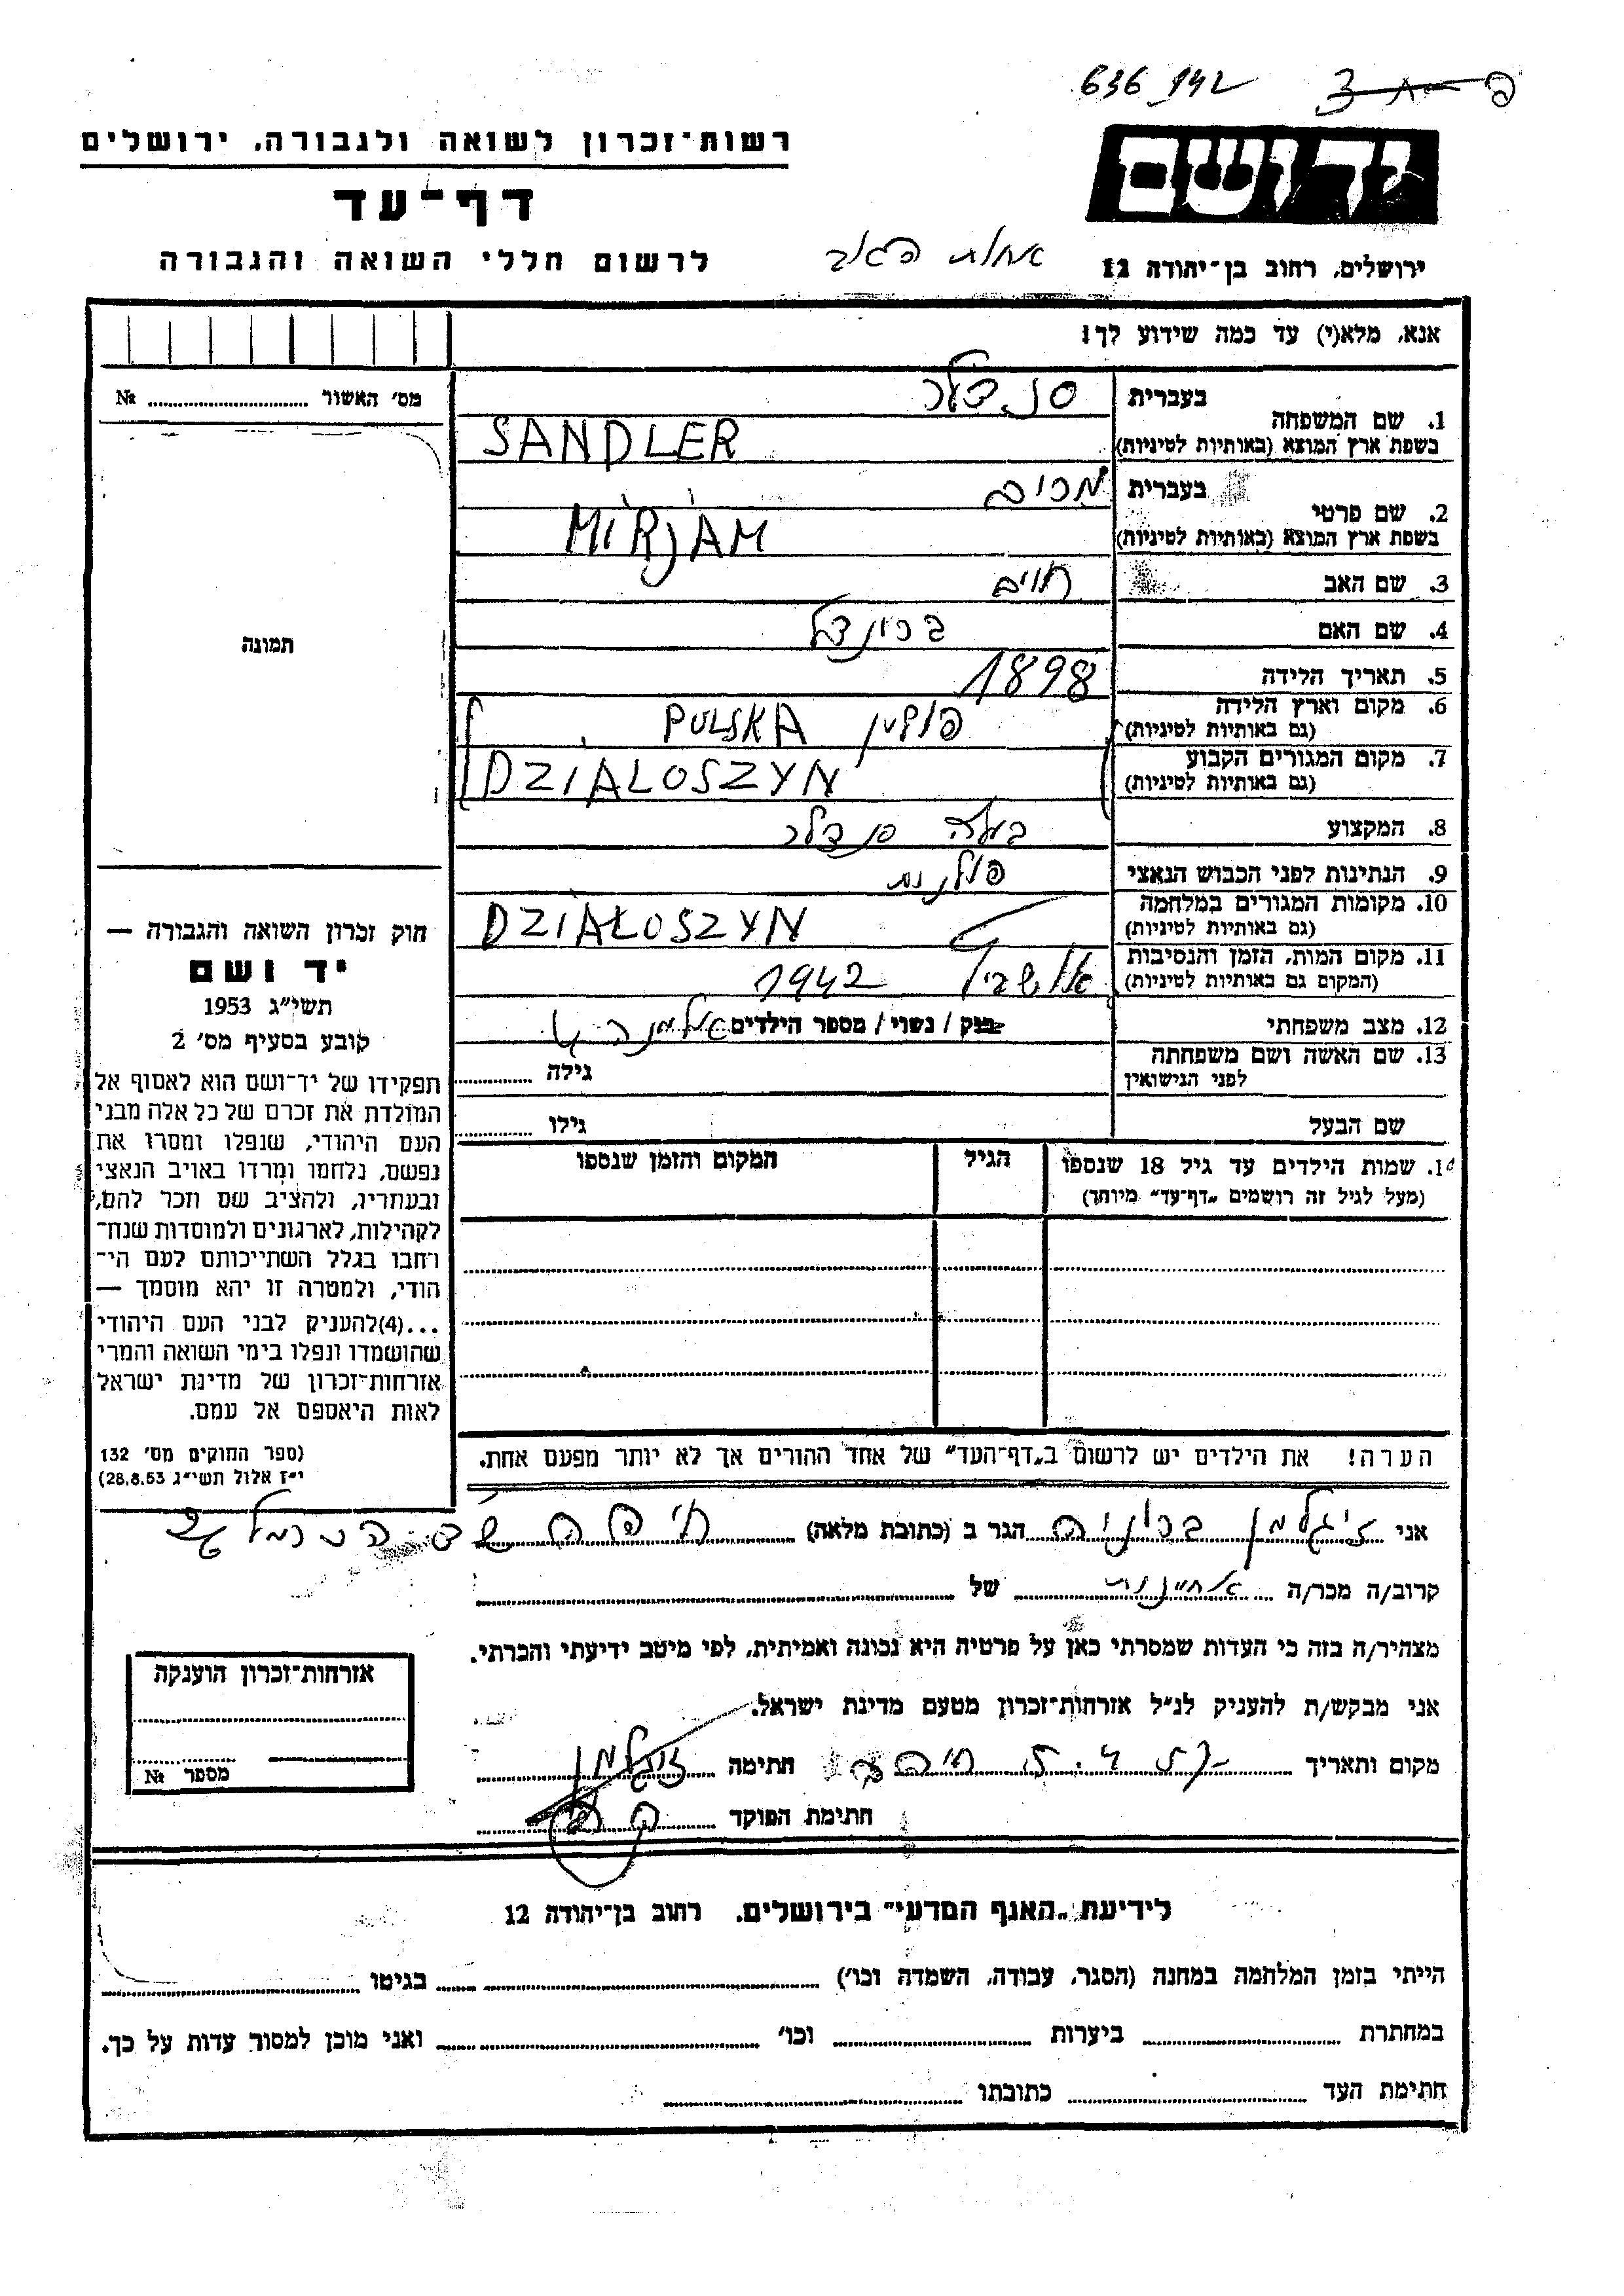 636 142
רשות־זכרון לשואה ולגבורה, ירושלים
יד ושם
דף־עד
לרשום חללי השואה והגבורה
ירושלים, רחוב בן־יהודה 12
אנא, מלא(י) עד כמה שידוע לך!
מס׳ האשור № 
1. שם המשפחה
בעברית סנדלר
בשפת ארץ המוצא (באותיות לטיניות) SANDLER
2. שם פרטי
בעברית מרים
בשפת ארץ המוצא (באותיות לטיניות) MIRJAM
3. שם האב חיים
4. שם האם בריינדל
5. תאריך הלידה 1898
6. מקום וארץ הלידה פולין PULSKA
(גם באותיות לטיניות)
7. מקום המגורים הקבוע DZIALOSZYN
(גם באותיות לטיניות)
8. המקצוע סנדלר
9. הנתינות לפני הכבוש הנאצי פולנית
10. מקומות המגורים במלחמה DZIAŁOSZYN
(גם באותיות לטיניות)
11. מקום המות, הזמן והנסיבות 1942
(המקום גם באותיות לטיניות)
12. מצב משפחתי רווק / נשוי / מספר הילדים אלמנה
13. שם האשה ושם משפחתה גילה
לפני הנישואין
שם הבעל גילו
14. שמות הילדים עד גיל 18 שנספו הגיל המקום והזמן שנספו
(מעל לגיל זה רושמים „דף־עד” מיוחד)
הערה! את הילדים יש לרשום ב„דף־העד” של אחד ההורים אך לא יותר מפעם אחת.
תמונה
חוק זכרון השואה והגבורה —
יד ושם
תשי״ג 1953
קובע בסעיף מס׳ 2
תפקידו של יד־ושם הוא לאסוף אל
המולדת את זכרם של כל אלה מבני
העם היהודי, שנפלו ומסרו את
נפשם, נלחמו ומרדו באויב הנאצי
ובעוזריו, ולהציב שם וזכר להם,
לקהילות, לארגונים ולמוסדות שנח־
רבו בגלל השתייכותם לעם הי־
הודי, ולמטרה זו יהא מוסמך —
...(4)להעניק לבני העם היהודי
שהושמדו ונפלו בימי השואה והמרי
אזרחות־זכרון של מדינת ישראל
לאות היאספם אל עמם.
(ספר החוקים מס׳ 132
י״ז אלול תשי״ג 28.8.53)
אני זיגלמן ברוניה הגר ב (כתובת מלאה) חיפה
קרוב/ה מכר/ה אחיינית של
מצהיר/ה בזה כי העדות שמסרתי כאן על פרטיה היא נכונה ואמיתית, לפי מיטב ידיעתי והכרתי.
אני מבקש/ת להעניק לנ״ל אזרחות־זכרון מטעם מדינת ישראל.
מקום ותאריך חיפה חתימה זיגלמן
חתימת הפוקד
אזרחות־זכרון הוענקה
מספר №
לידיעת „האגף המדעי” בירושלים, רחוב בן־יהודה 12
הייתי בזמן המלחמה במחנה (הסגר, עבודה, השמדה וכו׳) בגיטו
במחתרת ביערות וכו׳ ואני מוכן למסור עדות על כך.
חתימת העד כתובתו